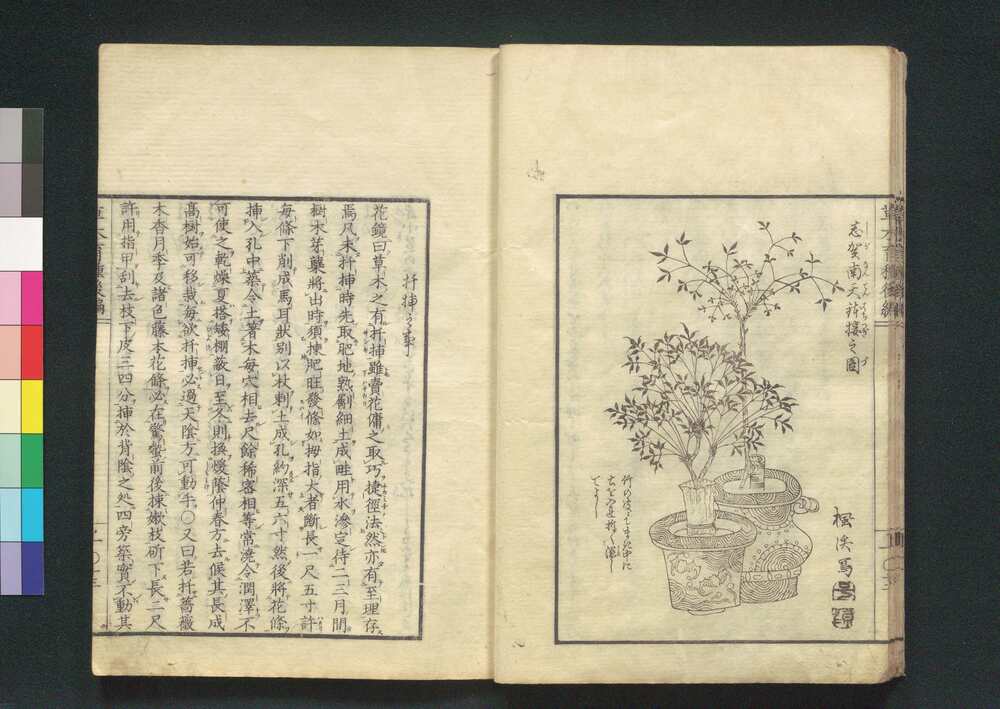 草木育種後編
志賀南天ノ接之圖
楓渓寫
扦挿之事
花鏡曰草木之有扦挿雖賣花傭之取巧捷徑法然亦有至理存
焉凡未扦挿時先取肥地熟劚細土成畦用水滲定待二三月間
樹木芽蘖將出時須揀肥旺發條如拇指大者斷長一尺五寸許
毎條下削成馬耳狀別以杖刺土成孔約深五六寸然後將花條
挿入孔中築令土著木毎穴相去尺餘稀密相等常澆令潤澤不
可使之乾燥夏搭矮棚蔽日至冬則換煖蔭仲春方去候其長成
高樹始可移栽毎欲扦挿必過天陰方可動手〇又曰若扦薔薇
木香月季及諸色藤本花條必在驚蟄前後揀嫩枝斫下長二尺
許用指甲刮去枝下皮三四分挿於背陰之処四旁築實不動其
草木育種後編